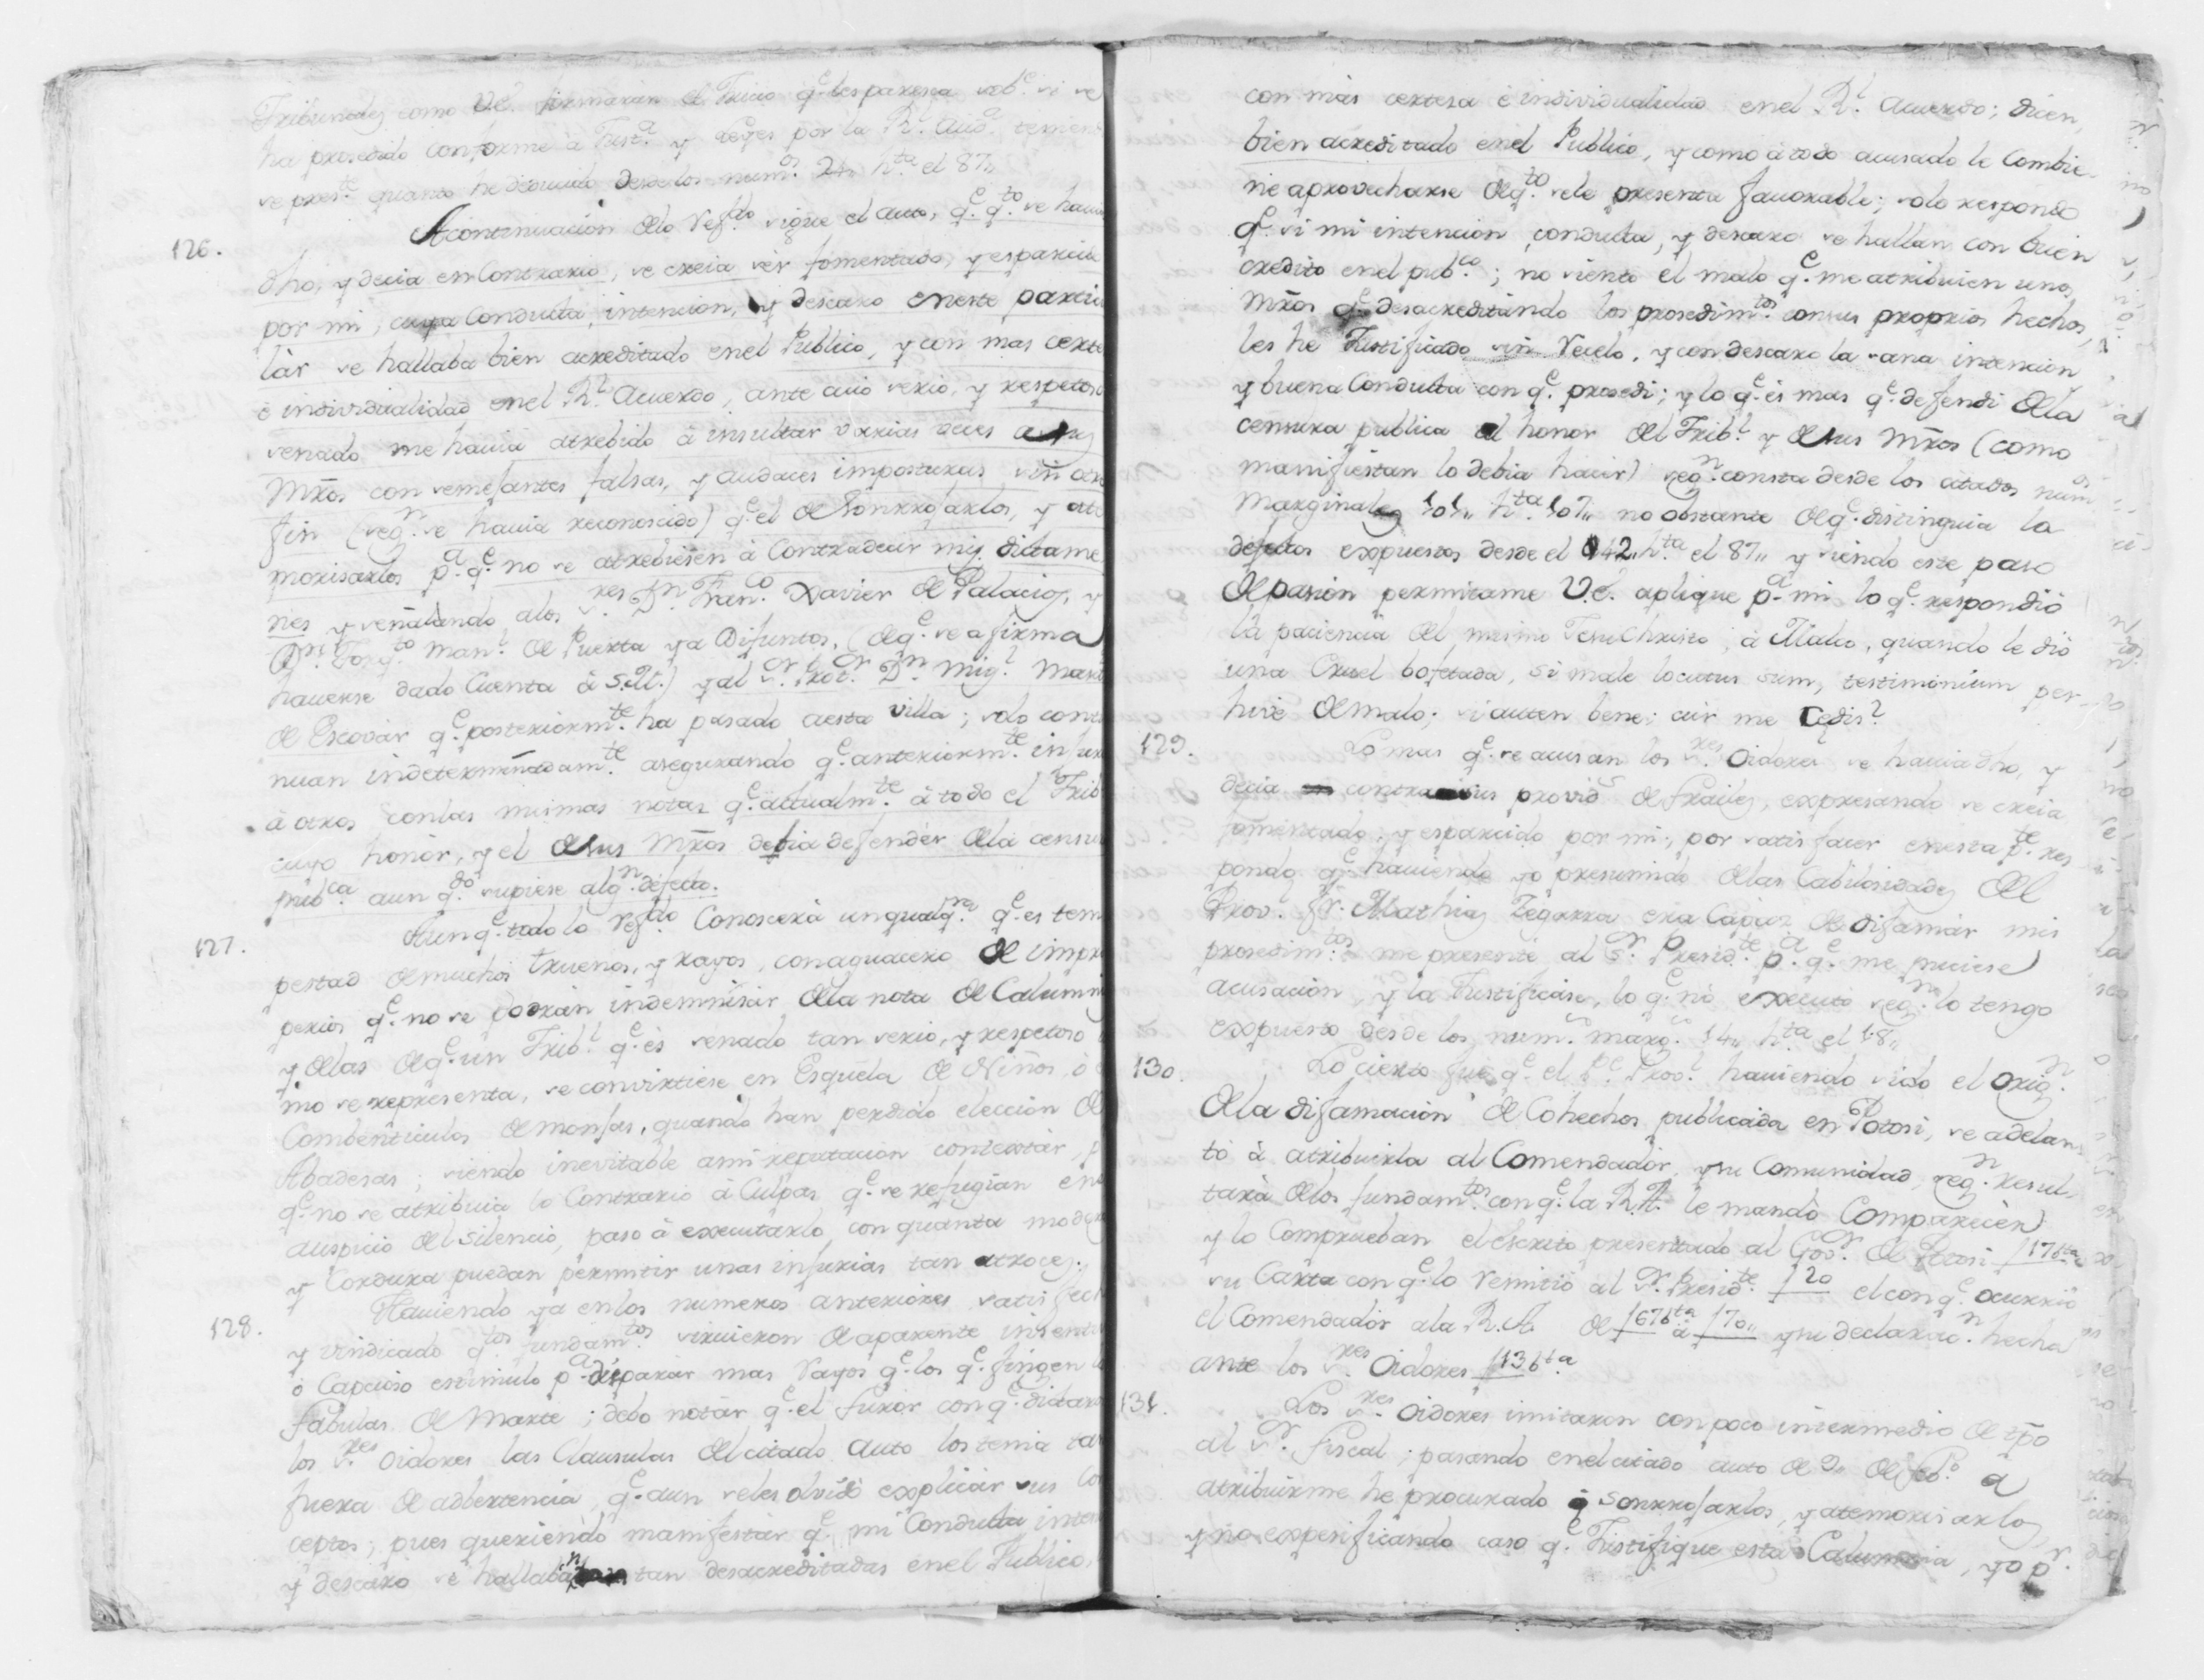 Tribunales, como V.E. firmarán el Juicio q.e les paresca sob.e si se
ha prosedido conforme à Just.a y Leyes por la R.l Aud.a tenien
se pres.te quanto he deducido desde los num.os 24 h.ta el 87,,
126. A continuacion de lo Ref.do sigue el auto, q.e q.to se havia
dho, y decia en Contrario, se creia ser fomentado, y esparcido
por mi, cuya Conducta, intencion, y descaro en este particu
lár se hallaba bien acreditado en el Publico, y con mas certe
è individualidad en el R.l Acuerdo, ante cuio serio, y respetoso
senado me havia atrebido à insultar varias veces a sus
Mrõs con semejantes falsas, y audaces imposturas sin otro
fin (seg.n se havia reconoscido) q.e el de Sonrrojarlos, y ate
morisarlos p.a q.e no se atrebiesen à Contradecir mis dictame
nes y señalando alos S.res D.n Fran.co Xavier de Palacios, y
D.n Joaq.to Man.l de Puerta ya Difuntos, (de q.e se afirma
haverse dado Cuenta à S.M.) y al S.r Prot.r D.n Mig.l Mart
de Escovár q.e posteriorm.te ha pasado a esta Villa; solo conti
nuan indeterminadam.te asegurando q.e anteriorm.te injur
à otros con las mismas notas q.e actualm.te à todo el Trib
cuyo honór, y el de sus Mrõs debia defendér de la censu
pub.ca aun q.do supiese alg.n defecto.
127. Aunq.e todo lo Ref.do Conoscerà un qualq.ra q.e es tem
pestad de muchos truenos, y rayos, con aguacero de impro
perios q.e no se podrán indemnisár de la nota de Calumni
y de las de q.e un Trib.l q.e es senado tan serio, y respetoso
mo se representa, se convirtiese en Esquela de Niños, ò
Combenticulos de monjas, quando han perdido eleccion de
Abadesas; siendo inevitable a mi reputacion contextár, p
q.e no se atribuia lo Contrario à Culpas q.e se refugian en el
auspicio del silencio, paso à executarlo con quanta moder
y Cordura puedan permitir unas injurias tan atroces.
128. Haviendo ya en los numeros anteriores satisfech
y vindicado q.tos fundam.tos sirvieron de aparente insenti
ò Capcioso estimulo p.a disparár mas rayos q.e los q.e fingen
fabulas de Marte; debo notár q.e el furór con q.e dictaro
los S.res Oidores las Clausulas del citado Auto los tenia tan
fuera de adbertencia, q.e aun se les olvidò explicár sus Con
ceptos; pues queriendo manifestár q.e mi Conducta inten
y descaro se hallaban tan desacreditadas en el Publico,
con más certesa è individualidad en el R.l Acuerdo; dicen,
bien acreditado en el Publico, y como à todo acusado le Combie-
ne aprovecharse de q.to se le presenta favorable; solo respondo
q.e si mi intencion, conducta, y descaro se hallan con buen
credito en el pub.co; no siento el malo q.e me atribuien unos
Mrõs q.e desacreditando los prosedim.tos con sus proprios hechos,
les he Justificado sin Recelo, y con descaro la sana intencion
y buena Conducta con q.e prosedi; y lo q.e es mas q.e defendi de la
censura publica el honor del Trib.l y de sus Mrõs (como
manifiestan lo debia hacer) seg.n consta desde los citados num.os
Marginales 101,, h.ta 107,, no obstante de q.e distinguia la
defectos expuestos desde el 42,, h.ta el 87,, y siendo este paso
de pasion permitame V.E. aplique p.a mi lo q.e respondió
la paciencia del mismo JesuChristo, à Malco, quando le diò
una Cruel bofetada, si male locutus sum, testimonium per-
hive de malo; si auten bene: cur me Cedis?
129. Lo mas q.e se acusan los S.res Oidores se havia dho, y
decia contra sus provid.s de frailes, expresando se creia
fomentado, y esparcido por mi; por satisfacer en esta p.te res
pondo q.e haviendo yo presumido de las Cabilosidades del
Prov. fr. Mathias Zegarra era Capaz de difamár mis
prosedim.tos me presenté al S.r Presid.te p.a q.e me pusiese
acusacion, y la Justificase, lo q.e nò executò seg.n lo tengo
expuesto desde los num.os marg.s 14,, h.ta el 18,,
130. Lo cierto fué q.e el P.e Prov.l haviendo sido el orig.n
de la difamacion de Cohechos publicada en Potosi, se adelan
tò à atribuirla al Comendadór, y su Comunidad, seg.n resul-
tarà de los fundam.tos con q.e la R.A. le mandò Comparecer
y lo Comprueban el escrito presentado al Gov.r de Potosi f 176 ta
su Carta con q.e lo remitiò al S.r Presid.te f 20 el con q.e ocurriò
el Comendadór a la R.A. de f 67 b.ta à f 70,, y su declaraz.n hecha
ante los S.res Oidores f 136 ta
131. Los S.res Oidores imitaron con poco intermedio de tpõ
al S.r fiscal; pasando en el citado auto de 9,, de feb.o a
atribuirme he procurado Sonrrojarlos, y atemorisarlos,
y no espesificando caso q.e Justifique esta Calumnia, yo p.r